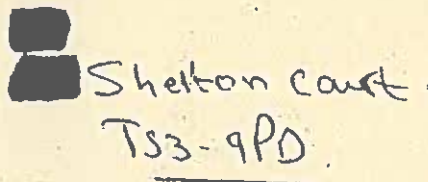 Shelton Court.
TS3-9PD.